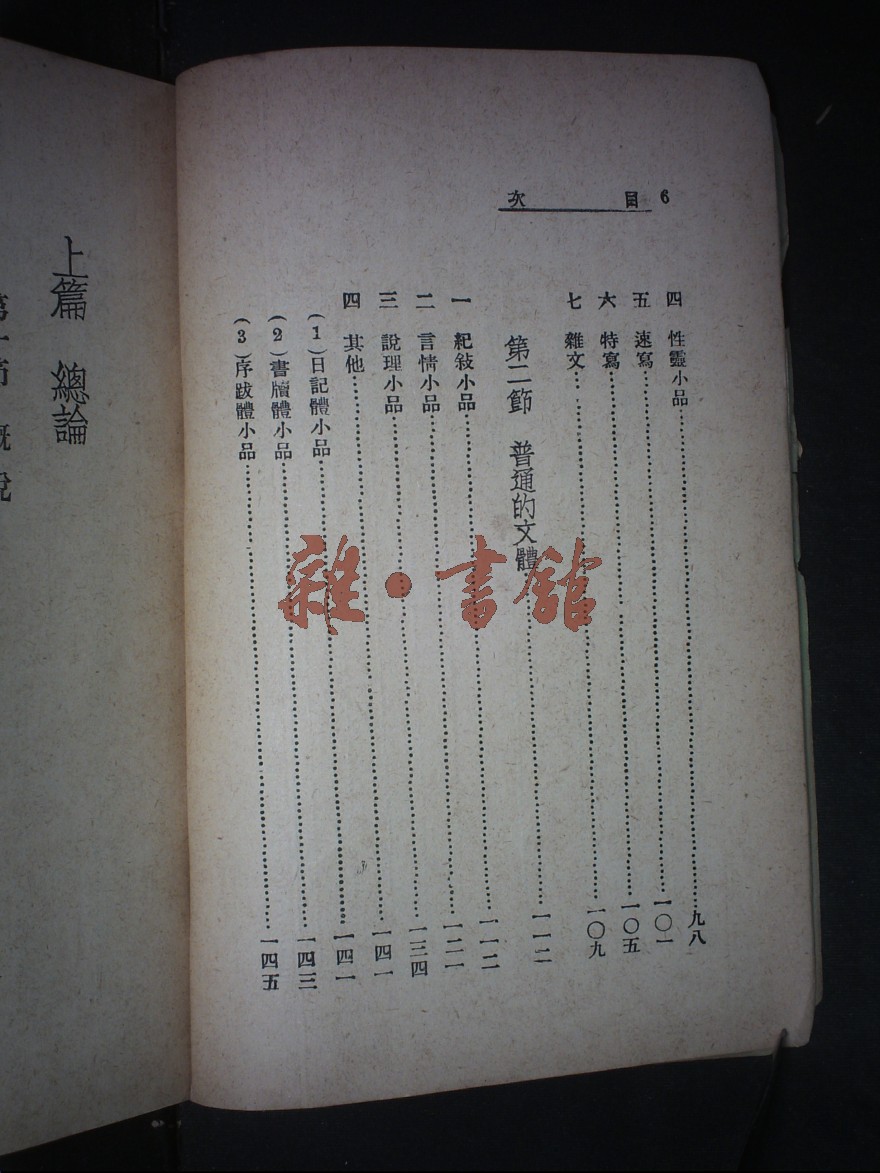 6 目次
四 性靈小品……九八
五 速寫……一〇一
六 特寫……一〇五
七 雜文……一〇九
第二節 普通的文體……一一二
一 紀敍小品……一一二
二 言情小品……一二一
三 說理小品……一三四
四 其他……一四一
(1)日記體小品……一四一
(2)書牘體小品……一四三
(3)序跋體小品……一四五
上篇 總論
雜·書館